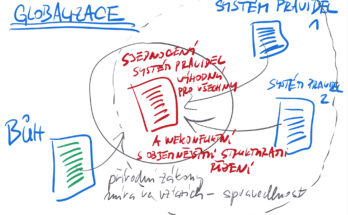 GLOBALIZACE
SYSTÉM PRAVIDEL
1
SJEDNOCENÝ
SYSTÉM PRAVIDEL
VÝHODNÝ
PRO VŠECHNY
SYSTÉM PRAVIDEL
2
BŮH
A NEKONFLIKTNÍ
S OBJEKTIVNĚJŠÍMI STRUKTURAMI
ŘÍZENÍ
přírodní zákony
míra ve vztazích - spravedlnost